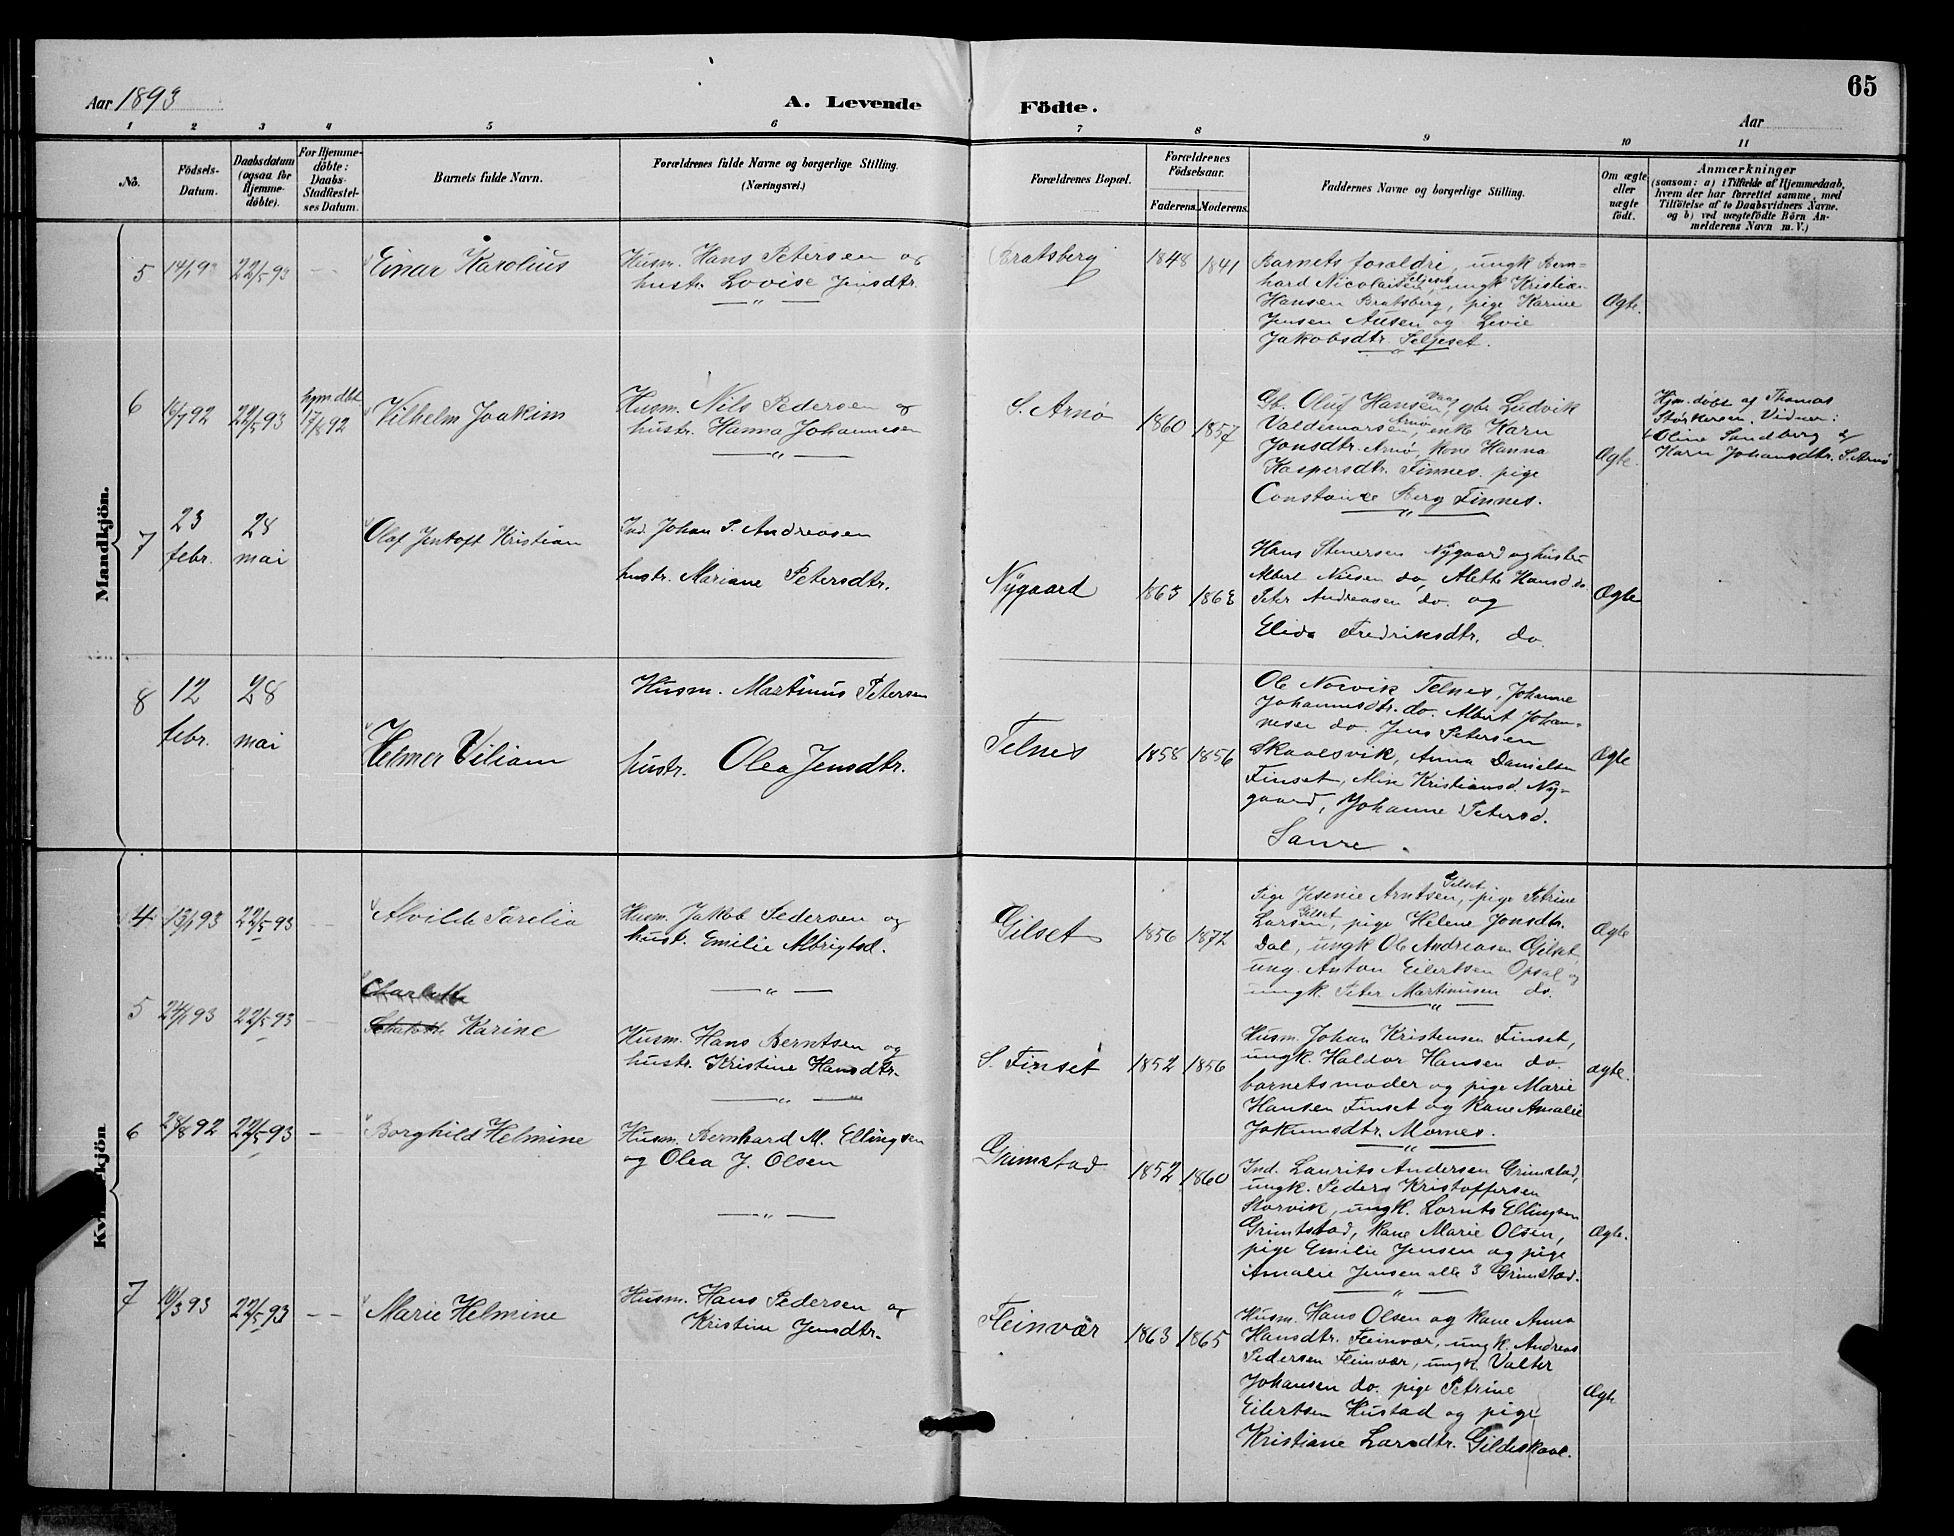 65
Aar 1893
A. Levende Födte.
Aar
1 2 3 4 5 6 7 8 9 10 11
No.
Födsels-
Datum.
Daabsdatum
(ogsaa for
Hjemme-
döbte).
For Hjemme-
döbte:
Daabs-
Stadfæstel-
ses Datum.
Barnets fulde Navn.
Forældrenes fulde Navne og borgerlige Stilling.
(Næringsvei.)
Forældrenes Bopæl.
Forældrenes
Födselsaar.
Faderens. Moderens.
Faddernes Navne og borgerlige Stilling.
Om ægte
eller
uægte
födt.
Anmærkninger
(saasom: a) i Tilfælde af Hjemmedaab,
hvem der har forrettet samme, med
Tilföielse af to Daabsvidners Navne.
og b) ved uægtefödte Börn An-
melderens Navn m. V.)
Mandkjön.
5 14/1 93 22/5 93 — Einar Karolius
Husm. Hans Petersen og
hustr. Lovise Jensdtr.
— " —
Bratsberg 1848 1841
Barnets forældre, ungk Bern-
hard Nicolaisen Seljeset, ungk Kristian
Hansen Bratsberg, pige Karine
Jensen Ausen og Levie
Jakobsdtr. Seljeset.
— " —
Ægte.
6 16/7 92 22/5 93 hjm.dbt 17/8 92 Vilhelm Joakim
Husm. Nils Pedersen og
hustr. Hanna Johannesen
— " —
S. Arnø 1860 1857
Gb. Oluf Hansen Vaag, gbr. Ludvik
Valdemarsen Arnø, enke Karn
Jonsdtr. Arnø, Kone Hanna
Kaspersdtr. Finnes. pige
Constance Berg Finnes.
— " —
Ægte.
Hjm. døbt af Thomas
Størkersen. Vidner:
Oline Sandberg &
Karn Johansdtr. S. Arnø
7 23 febr. 28 mai Olaf Jentoft Kristian
Ind. Johan P. Andreasen
hustr. Mariane Petersdtr.
Nÿgaard 1863 1863
Hans Stenersen Nÿgaard og hustru
Albert Nilsen do, Alette Hansd. do
Peter Andreasen do. og
Elida Fredriksdtr. do
Ægte
8 12 febr. 28 mai Helmer Viliam
Husm. Martinus Petersen
hustr. Olea Jensdtr.
Telnes 1858 1856
Ole Norvik Telnes, Johanne
Johannesdtr. do. Albert Johan-
nesen do. Jens Petersen
Skaalsvik, Anna Danielsen
Finset, Aline Kristiansd. Ny-
gaard, Johanne Petersd.
Saure.
Ægte
Kvindekjön
4 13/1 93 22/5 93 — Alvilde Parelia
Husm. Jakob Pedersen og
hust. Emilie Albrigtsd.
— " —
Gilset 1856 1872
Pige Jesenie Arntsen Gilset, pige Petrine
Larsen Gilset, pige Helene Jonsdtr.
Dal, ungk Ole Andreasen Gilset,
ung. Anton Eilertsen Opsal og
ungk. Peter Martinusen do.
— " —
Ægte
5 24/1 93 22/5 93 — Charlotte
Karine
Husm. Hans Berntsen og
hustr. Kristine Hansdtr.
— " —
S. Finset 1852 1856
Husm. Johan Kristensen Finset,
ungk. Haldor Hansen do.
barnets moder og pige Marie
Hansen Finset og Kone Amalie
Jakumsdtr. Mornes.
— " —
ægte.
6 28/8 92 22/5 93 — Borghild Helmine
Husm. Bernhard M. Ellingsen
og Olea J. Olsen
— " —
Grimstad 1852 1860
Ind. Laurits Andersen Grimstad,
ungk. Peders Kristoffersen
Storvik, ungk. Lornts Ellingsen
Grimtstad, Kone Marie Olsen,
pige Emilie Jensen og pige
Amalie Jensen alle 3 Grimstad.
— " —
Ægte.
7 10/3 93 22/5 93 — Marie Helmine
Husm. Hans Pedersen og
Kristine Jensdtr.
Fleinvær 1863 1865
Husm. Hans Olsen og Kone Anna
Hansdtr. Fleinvær, ungk. Andreas
Pedersen Fleinvær, ungk. Valter
Johansen do. pige Petrine
Eilertsen Hustad og pige
Kristiane Larsdtr. Gildeskaal.
Ægte